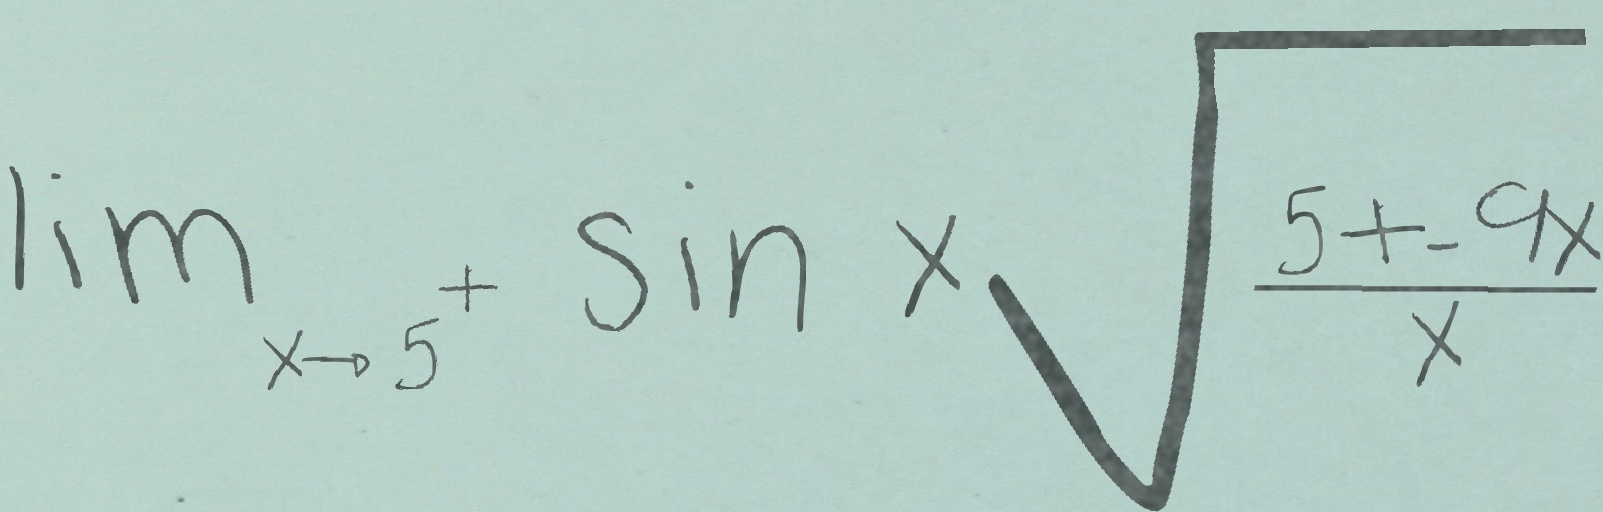 lim_{x→5^+} sin x √((5+-9x)/x)